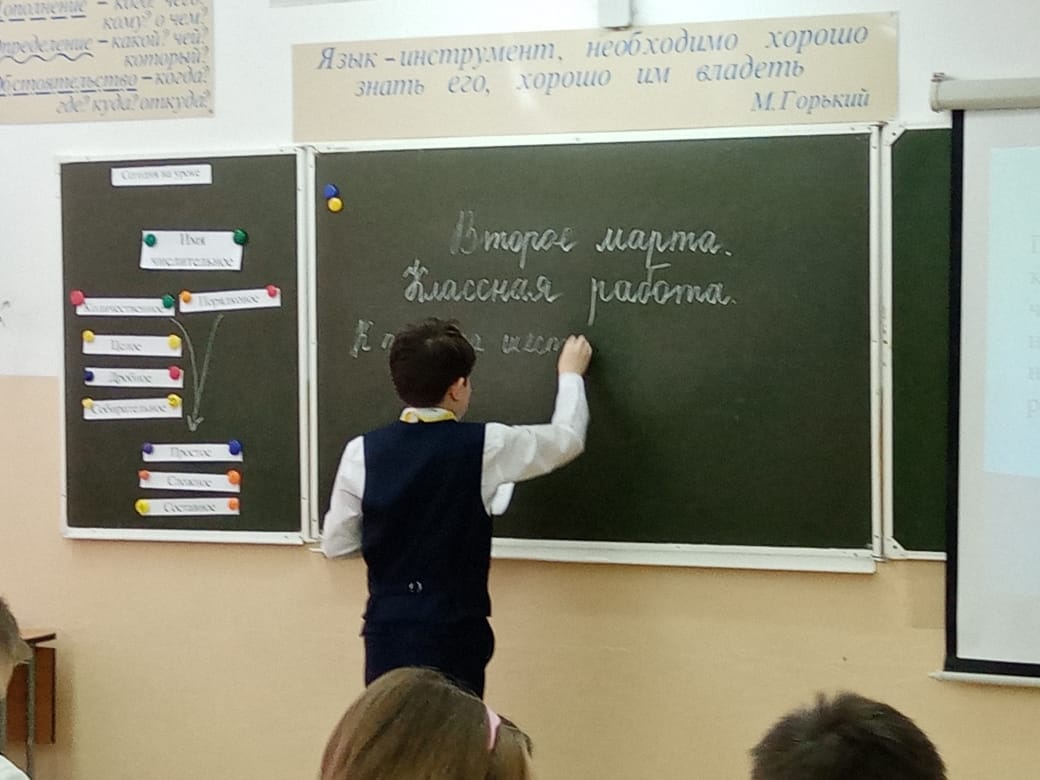 Дополнение – кого? чего?
кому? о чём?
Определение – какой? чей?
который?
Обстоятельство – когда?
где? куда? откуда?
Язык – инструмент, необходимо хорошо
знать его, хорошо им владеть
М.Горький
Сегодня на уроке
Имя
числительное
Количественное
Порядковое
Целое
Дробное
Собирательное
Простое
Сложное
Составное
Второе марта.
Классная работа.
К